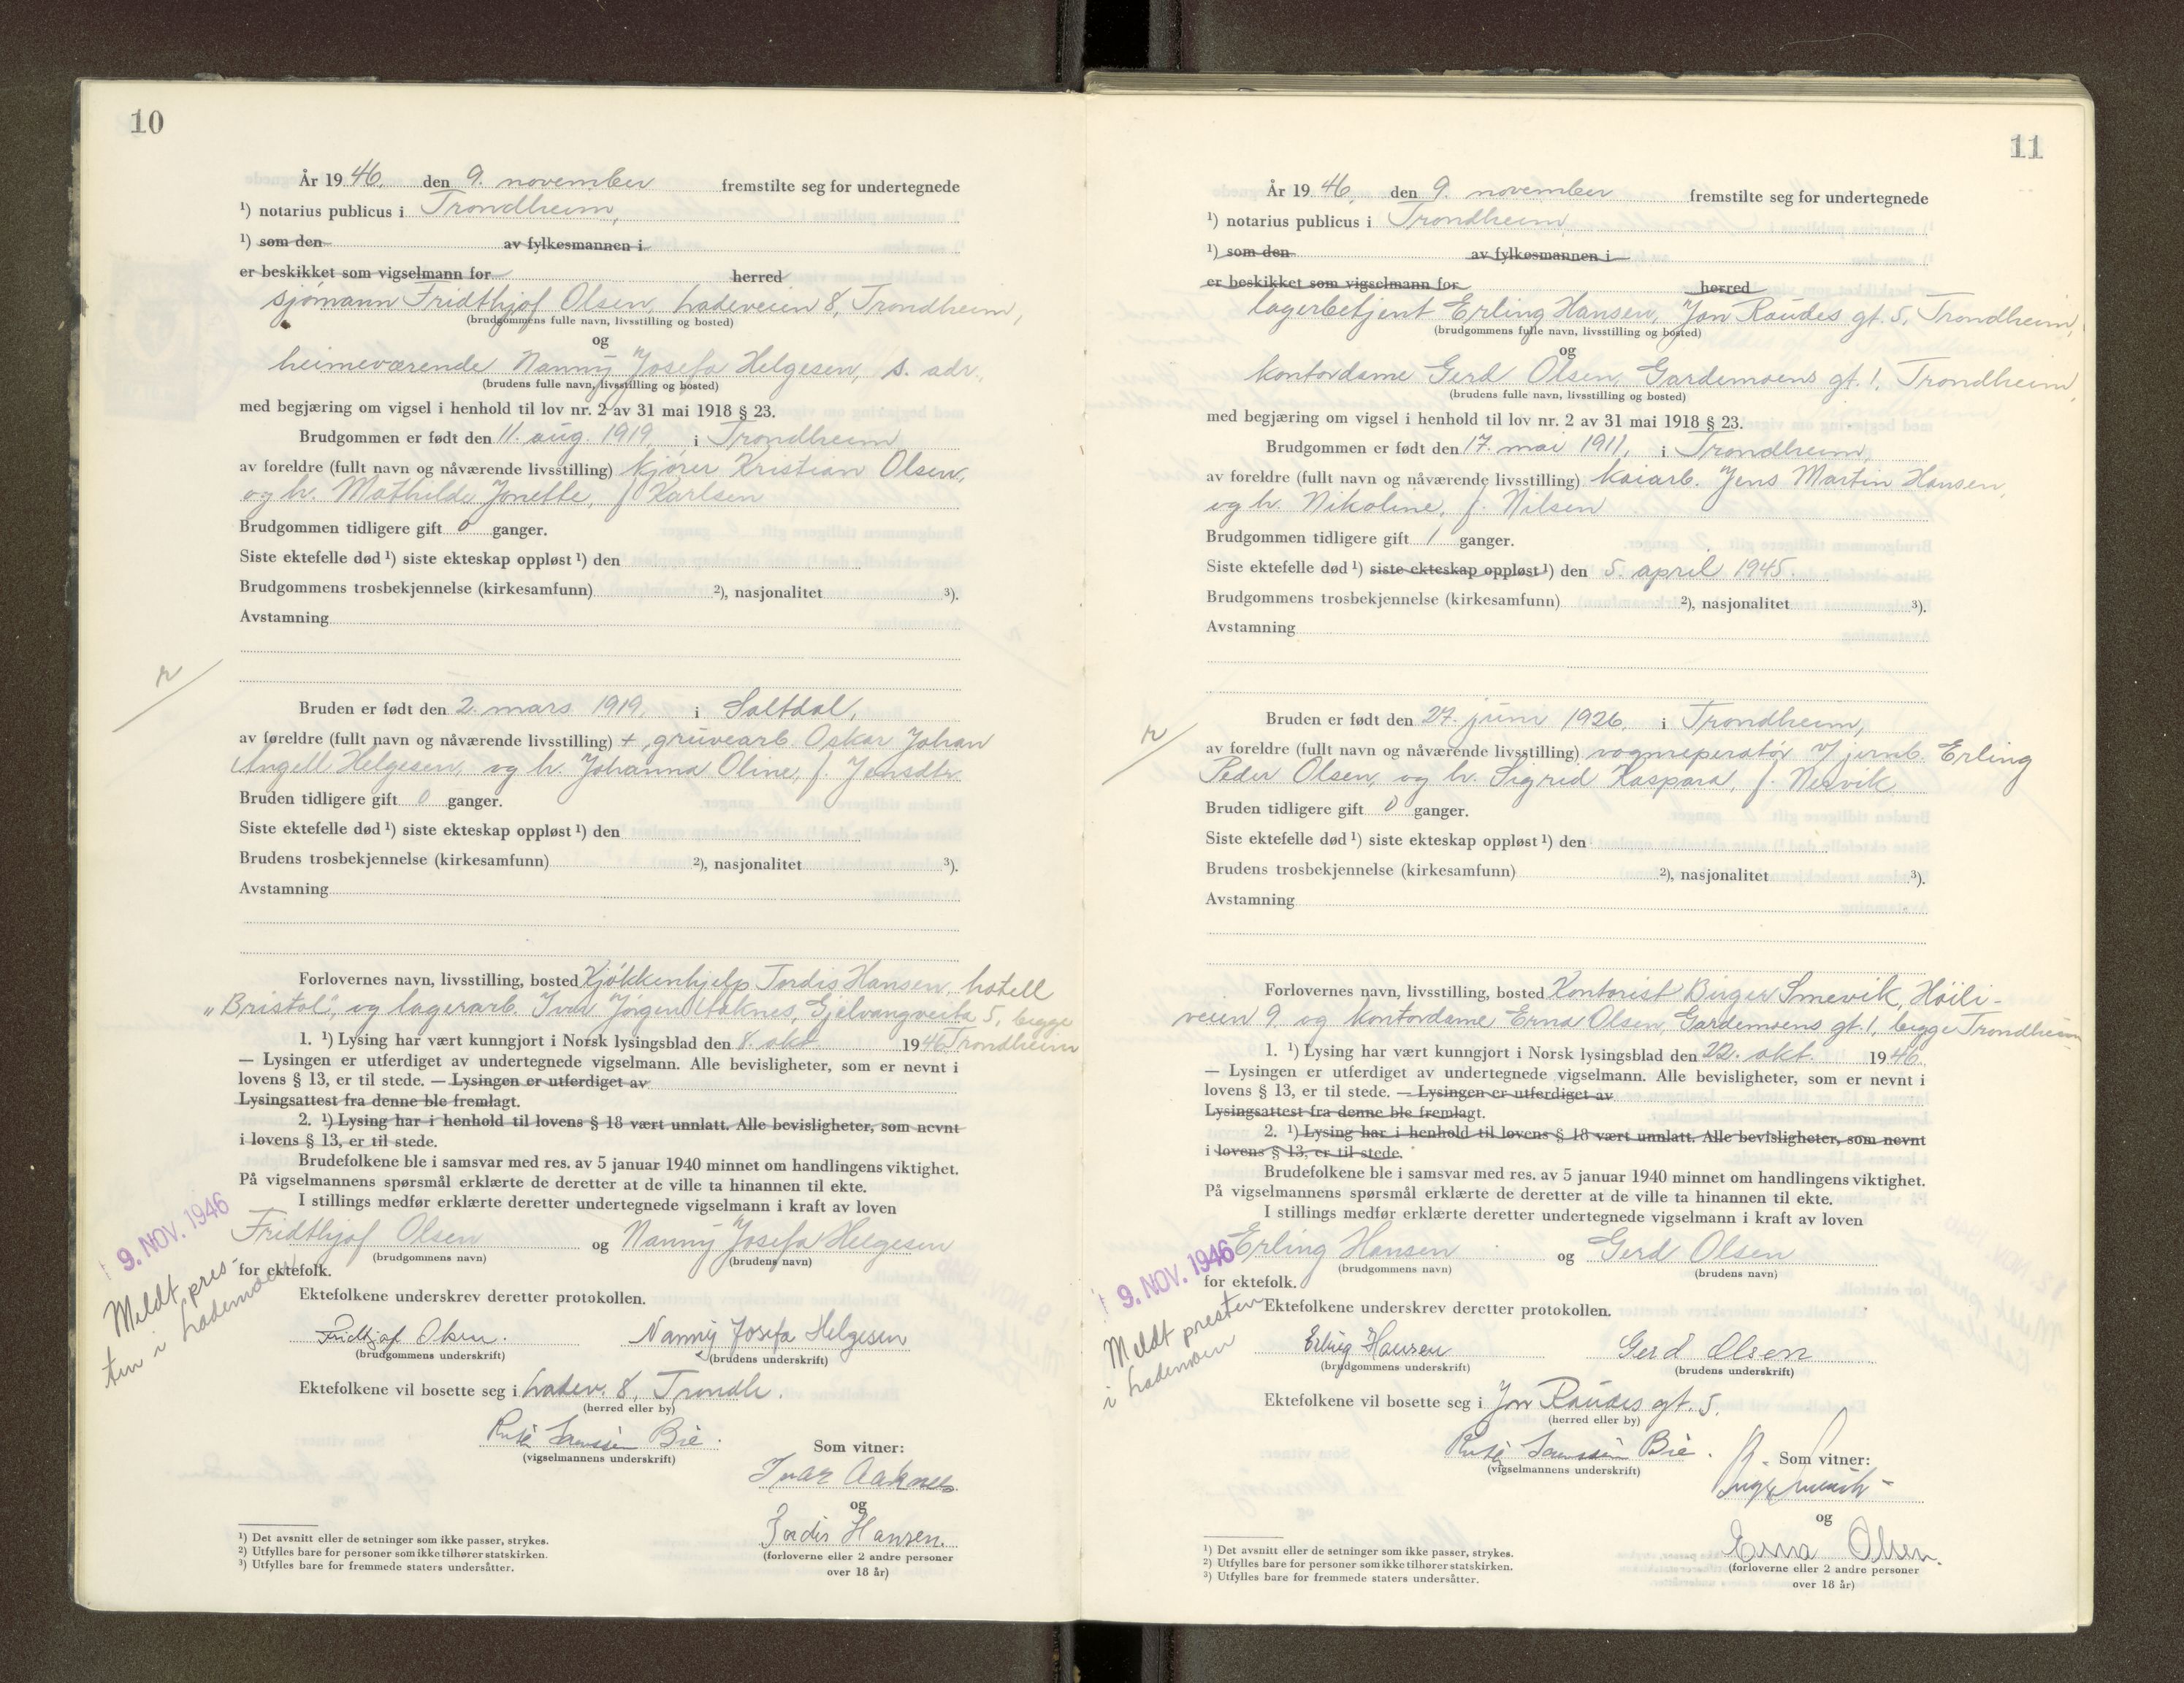 10
År 1946, den 9. november fremstilte seg for undertegnede
¹) notarius publicus i Trondheim,
¹) som den av fylkesmannen i
er beskikket som vigselmann for herred
sjömann Fridthjof Olsen, Ladeveien 8, Trondheim,
(brudgommens fulle navn, livsstilling og bosted)
og
heimeværende Nanny Josefa Helgesen, s. adr.,
(brudens fulle navn, livsstilling og bosted)
med begjæring om vigsel i henhold til lov nr. 2 av 31 mai 1918 § 23.
Brudgommen er født den 11. aug. 1919, i Trondheim
av foreldre (fullt navn og nåværende livsstilling) kjörer Kristian Olsen,
og h. Mathilde Jonette, f. Karlsen
Brudgommen tidligere gift 0 ganger.
Siste ektefelle død ¹) siste ekteskap oppløst ¹) den
Brudgommens trosbekjennelse (kirkesamfunn) ²), nasjonalitet ³).
Avstamning
Bruden er født den 2. mars 1919, i Saltdal,
av foreldre (fullt navn og nåværende livsstilling) + gruvearb. Oskar Johan
Angell Helgesen, og h. Johanna Oline, f. Jensdtr.
Bruden tidligere gift 0 ganger.
Siste ektefelle død ¹) siste ekteskap oppløst ¹) den
Brudens trosbekjennelse (kirkesamfunn) ²), nasjonalitet ³).
Avstamning
Forlovernes navn, livsstilling, bosted Kjökkenhjelp Tordis Hansen, hotell
„Bristol", og lagerarb. Ivar Jörgen Aaknes, Gjelvangveita 5, begge
1. ¹) Lysing har vært kunngjort i Norsk lysingsblad den 8. okt. 1946 Trondheim
— Lysingen er utferdiget av undertegnede vigselmann. Alle bevisligheter, som er nevnt i
lovens § 13, er til stede. — Lysingen er utferdiget av
Lysingsattest fra denne ble fremlagt.
2. ¹) Lysing har i henhold til lovens § 18 vært unnlatt. Alle bevisligheter, som nevnt
i lovens § 13, er til stede.
Brudefolkene ble i samsvar med res. av 5 januar 1940 minnet om handlingens viktighet.
På vigselmannens spørsmål erklærte de deretter at de ville ta hinannen til ekte.
I stillings medfør erklærte deretter undertegnede vigselmann i kraft av loven
Fridthjof Olsen og Nanny Josefa Helgesen
(brudgommens navn) (brudens navn)
for ektefolk.
9. NOV. 1946
Meldt pres-
ten i Lademoen
Ektefolkene underskrev deretter protokollen.
Fridthjof Olsen. Nanny Josefa Helgesen
(brudgommens underskrift) (brudens underskrift)
Ektefolkene vil bosette seg i Ladev. 8, Trondh.
(herred eller by)
Bie.
(vigselmannens underskrift)
Som vitner:
Ivar Aaknes
og
Tordis Hansen.
(forloverne eller 2 andre personer
over 18 år)
¹) Det avsnitt eller de setninger som ikke passer, strykes.
²) Utfylles bare for personer som ikke tilhører statskirken.
³) Utfylles bare for fremmede staters undersåtter.
11
År 1946, den 9. november fremstilte seg for undertegnede
¹) notarius publicus i Trondheim
¹) som den av fylkesmannen i
er beskikket som vigselmann for herred
lagerbetjent Erling Hansen, Jon Raudes gt. 5, Trondheim,
(brudgommens fulle navn, livsstilling og bosted)
og
kontordame Gerd Olsen, Gardemoens gt. 1, Trondheim,
(brudens fulle navn, livsstilling og bosted)
med begjæring om vigsel i henhold til lov nr. 2 av 31 mai 1918 § 23.
Brudgommen er født den 17. mai 1911, i Trondheim,
av foreldre (fullt navn og nåværende livsstilling) kaiarb. Jens Martin Hansen,
og h. Nikoline, f. Nilsen
Brudgommen tidligere gift 1 ganger.
Siste ektefelle død ¹) siste ekteskap oppløst ¹) den 5. april 1945.
Brudgommens trosbekjennelse (kirkesamfunn) ²), nasjonalitet ³).
Avstamning
Bruden er født den 27. juni 1926, i Trondheim,
av foreldre (fullt navn og nåværende livsstilling) vognreperatör v/ jernb. Erling
Peder Olsen, og h. Sigrid Kaspara, f. Nervik
Bruden tidligere gift 0 ganger.
Siste ektefelle død ¹) siste ekteskap oppløst ¹) den
Brudens trosbekjennelse (kirkesamfunn) ²), nasjonalitet ³).
Avstamning
Forlovernes navn, livsstilling, bosted Kontorist Birger Smevik, Höili-
veien 9, og kontordame Erna Olsen, Gardemoens gt. 1, begge Trondheim
1. ¹) Lysing har vært kunngjort i Norsk lysingsblad den 22. okt. 1946
— Lysingen er utferdiget av undertegnede vigselmann. Alle bevisligheter, som er nevnt i
lovens § 13, er til stede. — Lysingen er utferdiget av
Lysingsattest fra denne ble fremlagt.
2. ¹) Lysing har i henhold til lovens § 18 vært unnlatt. Alle bevisligheter, som nevnt
i lovens § 13, er til stede.
Brudefolkene ble i samsvar med res. av 5 januar 1940 minnet om handlingens viktighet.
På vigselmannens spørsmål erklærte de deretter at de ville ta hinannen til ekte.
I stillings medfør erklærte deretter undertegnede vigselmann i kraft av loven
Erling Hansen og Gerd Olsen
(brudgommens navn) (brudens navn)
for ektefolk.
9. NOV. 1946
Meldt presten
i Lademoen
Ektefolkene underskrev deretter protokollen.
Erling Hansen Gerd Olsen
(brudgommens underskrift) (brudens underskrift)
Ektefolkene vil bosette seg i Jon Raudes gt. 5.
(herred eller by)
Bie.
(vigselmannens underskrift)
Som vitner:
og
Erna Olsen.
(forloverne eller 2 andre personer
over 18 år)
¹) Det avsnitt eller de setninger som ikke passer, strykes.
²) Utfylles bare for personer som ikke tilhører statskirken.
³) Utfylles bare for fremmede staters undersåtter.